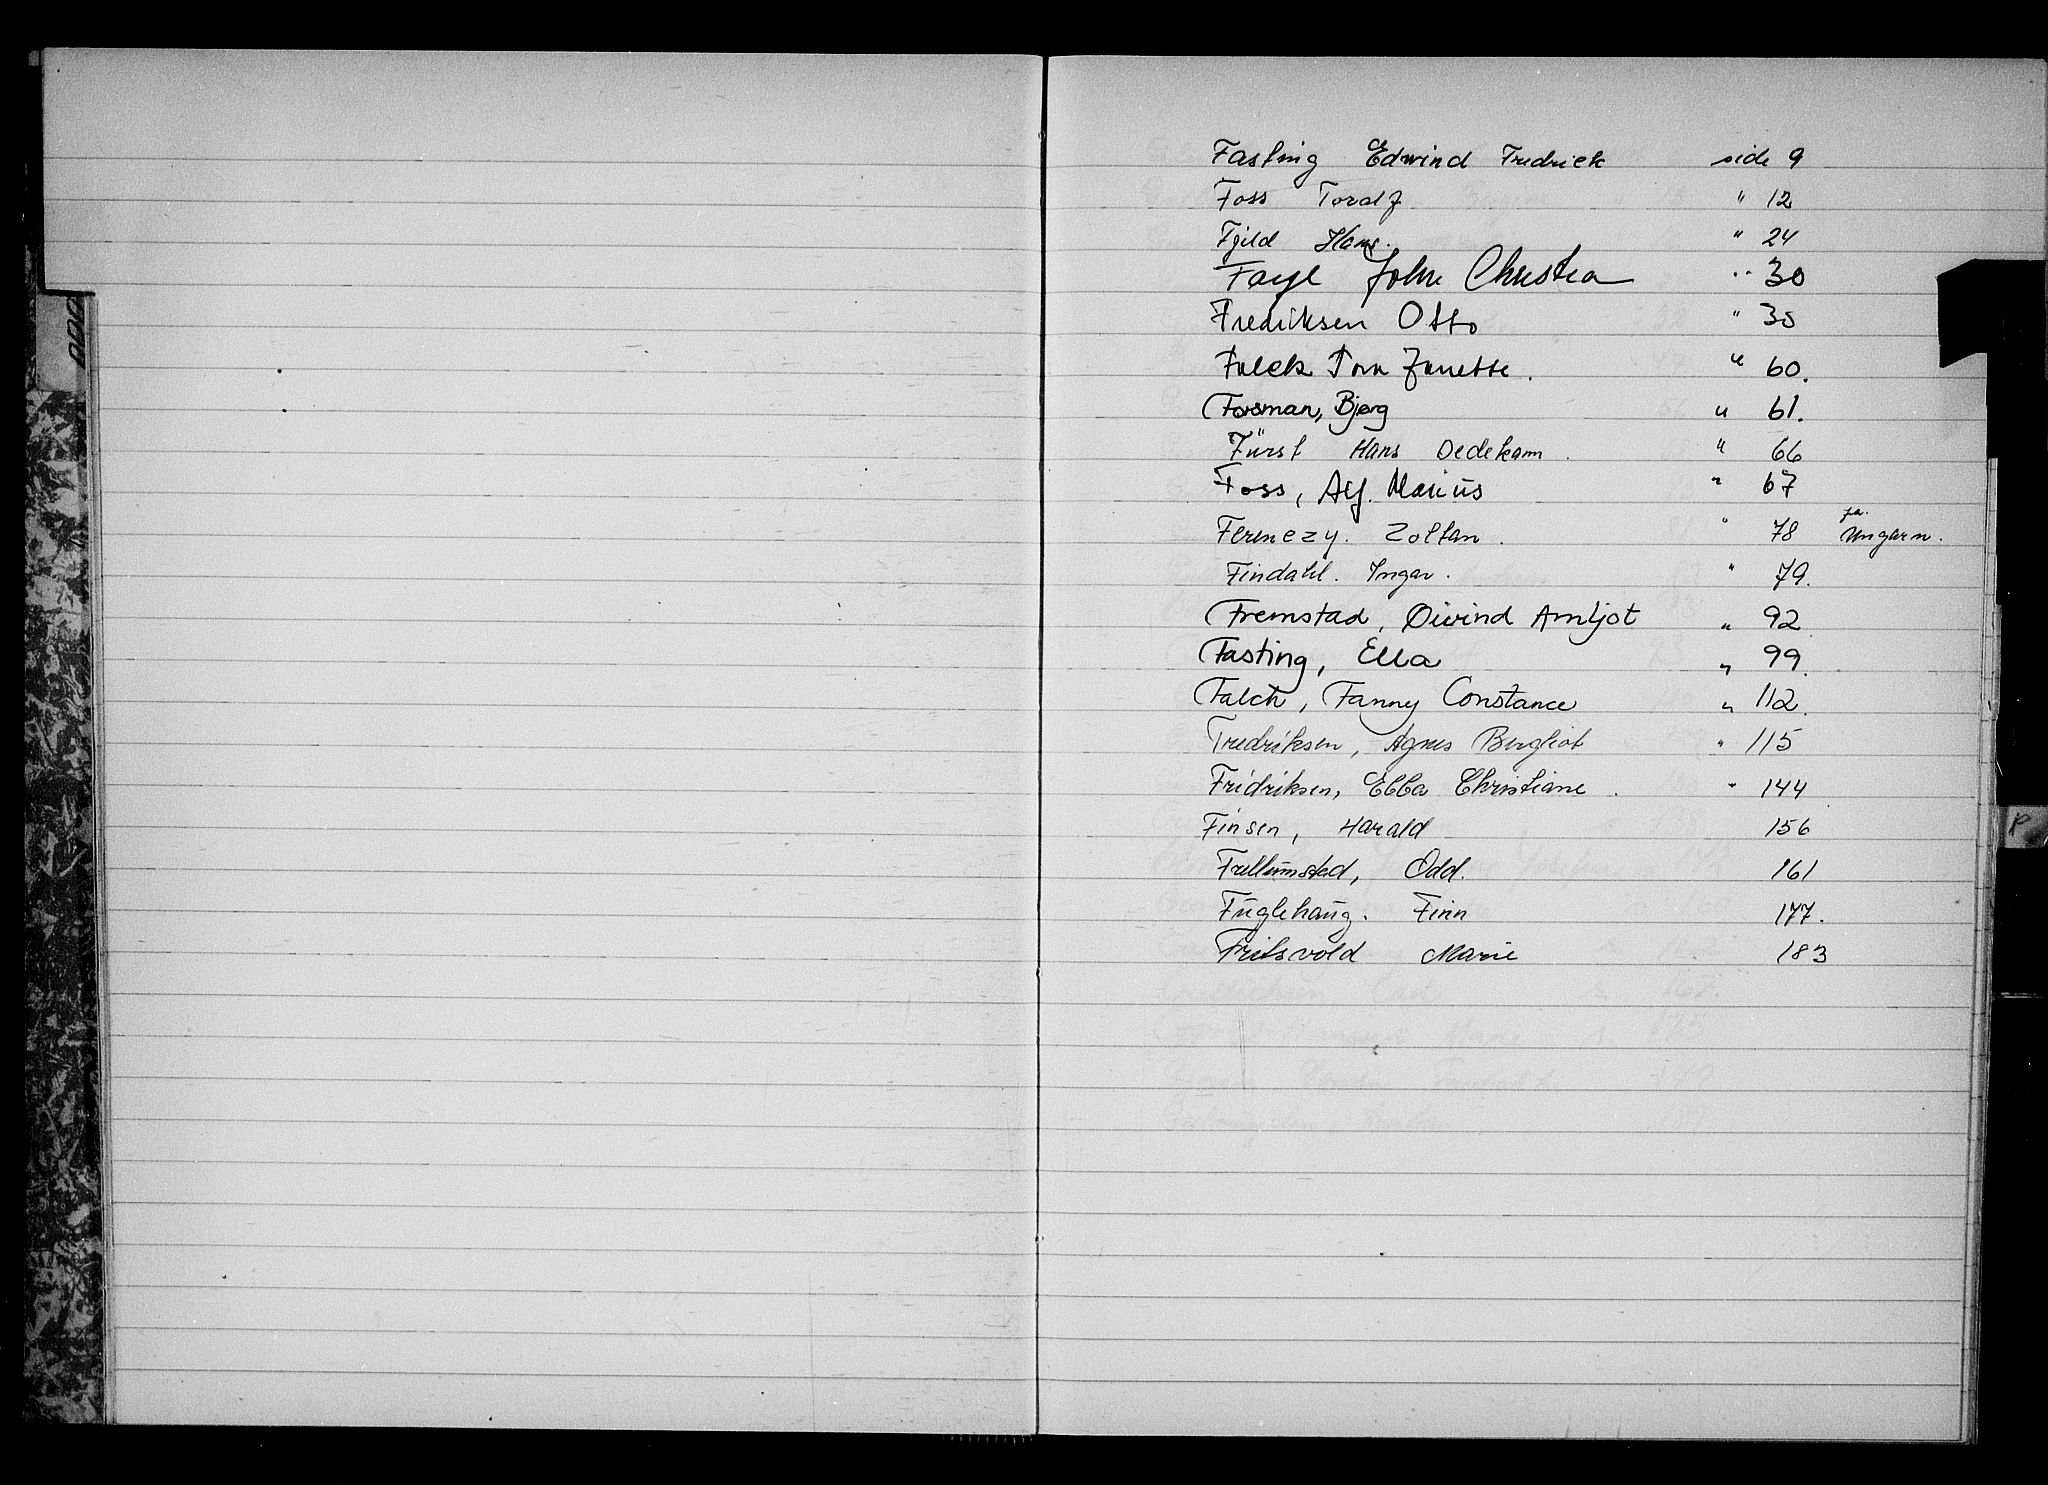 Fasting Edwind Fredrick side 9
Foss Toralf " 12
Fjild Hans. " 24
Faye John Christian " 30
Fredriksen Otto " 35
Falck Tora Janette. " 60.
Forsman, Bjørg " 61.
Fürst Hans Dedekam. " 66
Foss, Alf. Marius " 67
Ferenczy. Zoltan. " 78 fra. Ungarn.
Findahl. Ingar. " 79.
Fremstad, Øivind Arnljot " 92
Fasting, Ella " 99.
Falch, Fanny Constance " 112.
Fredriksen, Agnes Bergliot " 115
Fridriksen, Ebba Christiane. " 144
Finsen, Harald 156
Frellumstad, Odd. 161
Fuglehaug. Finn 177.
Fritsvold Marie 183
P